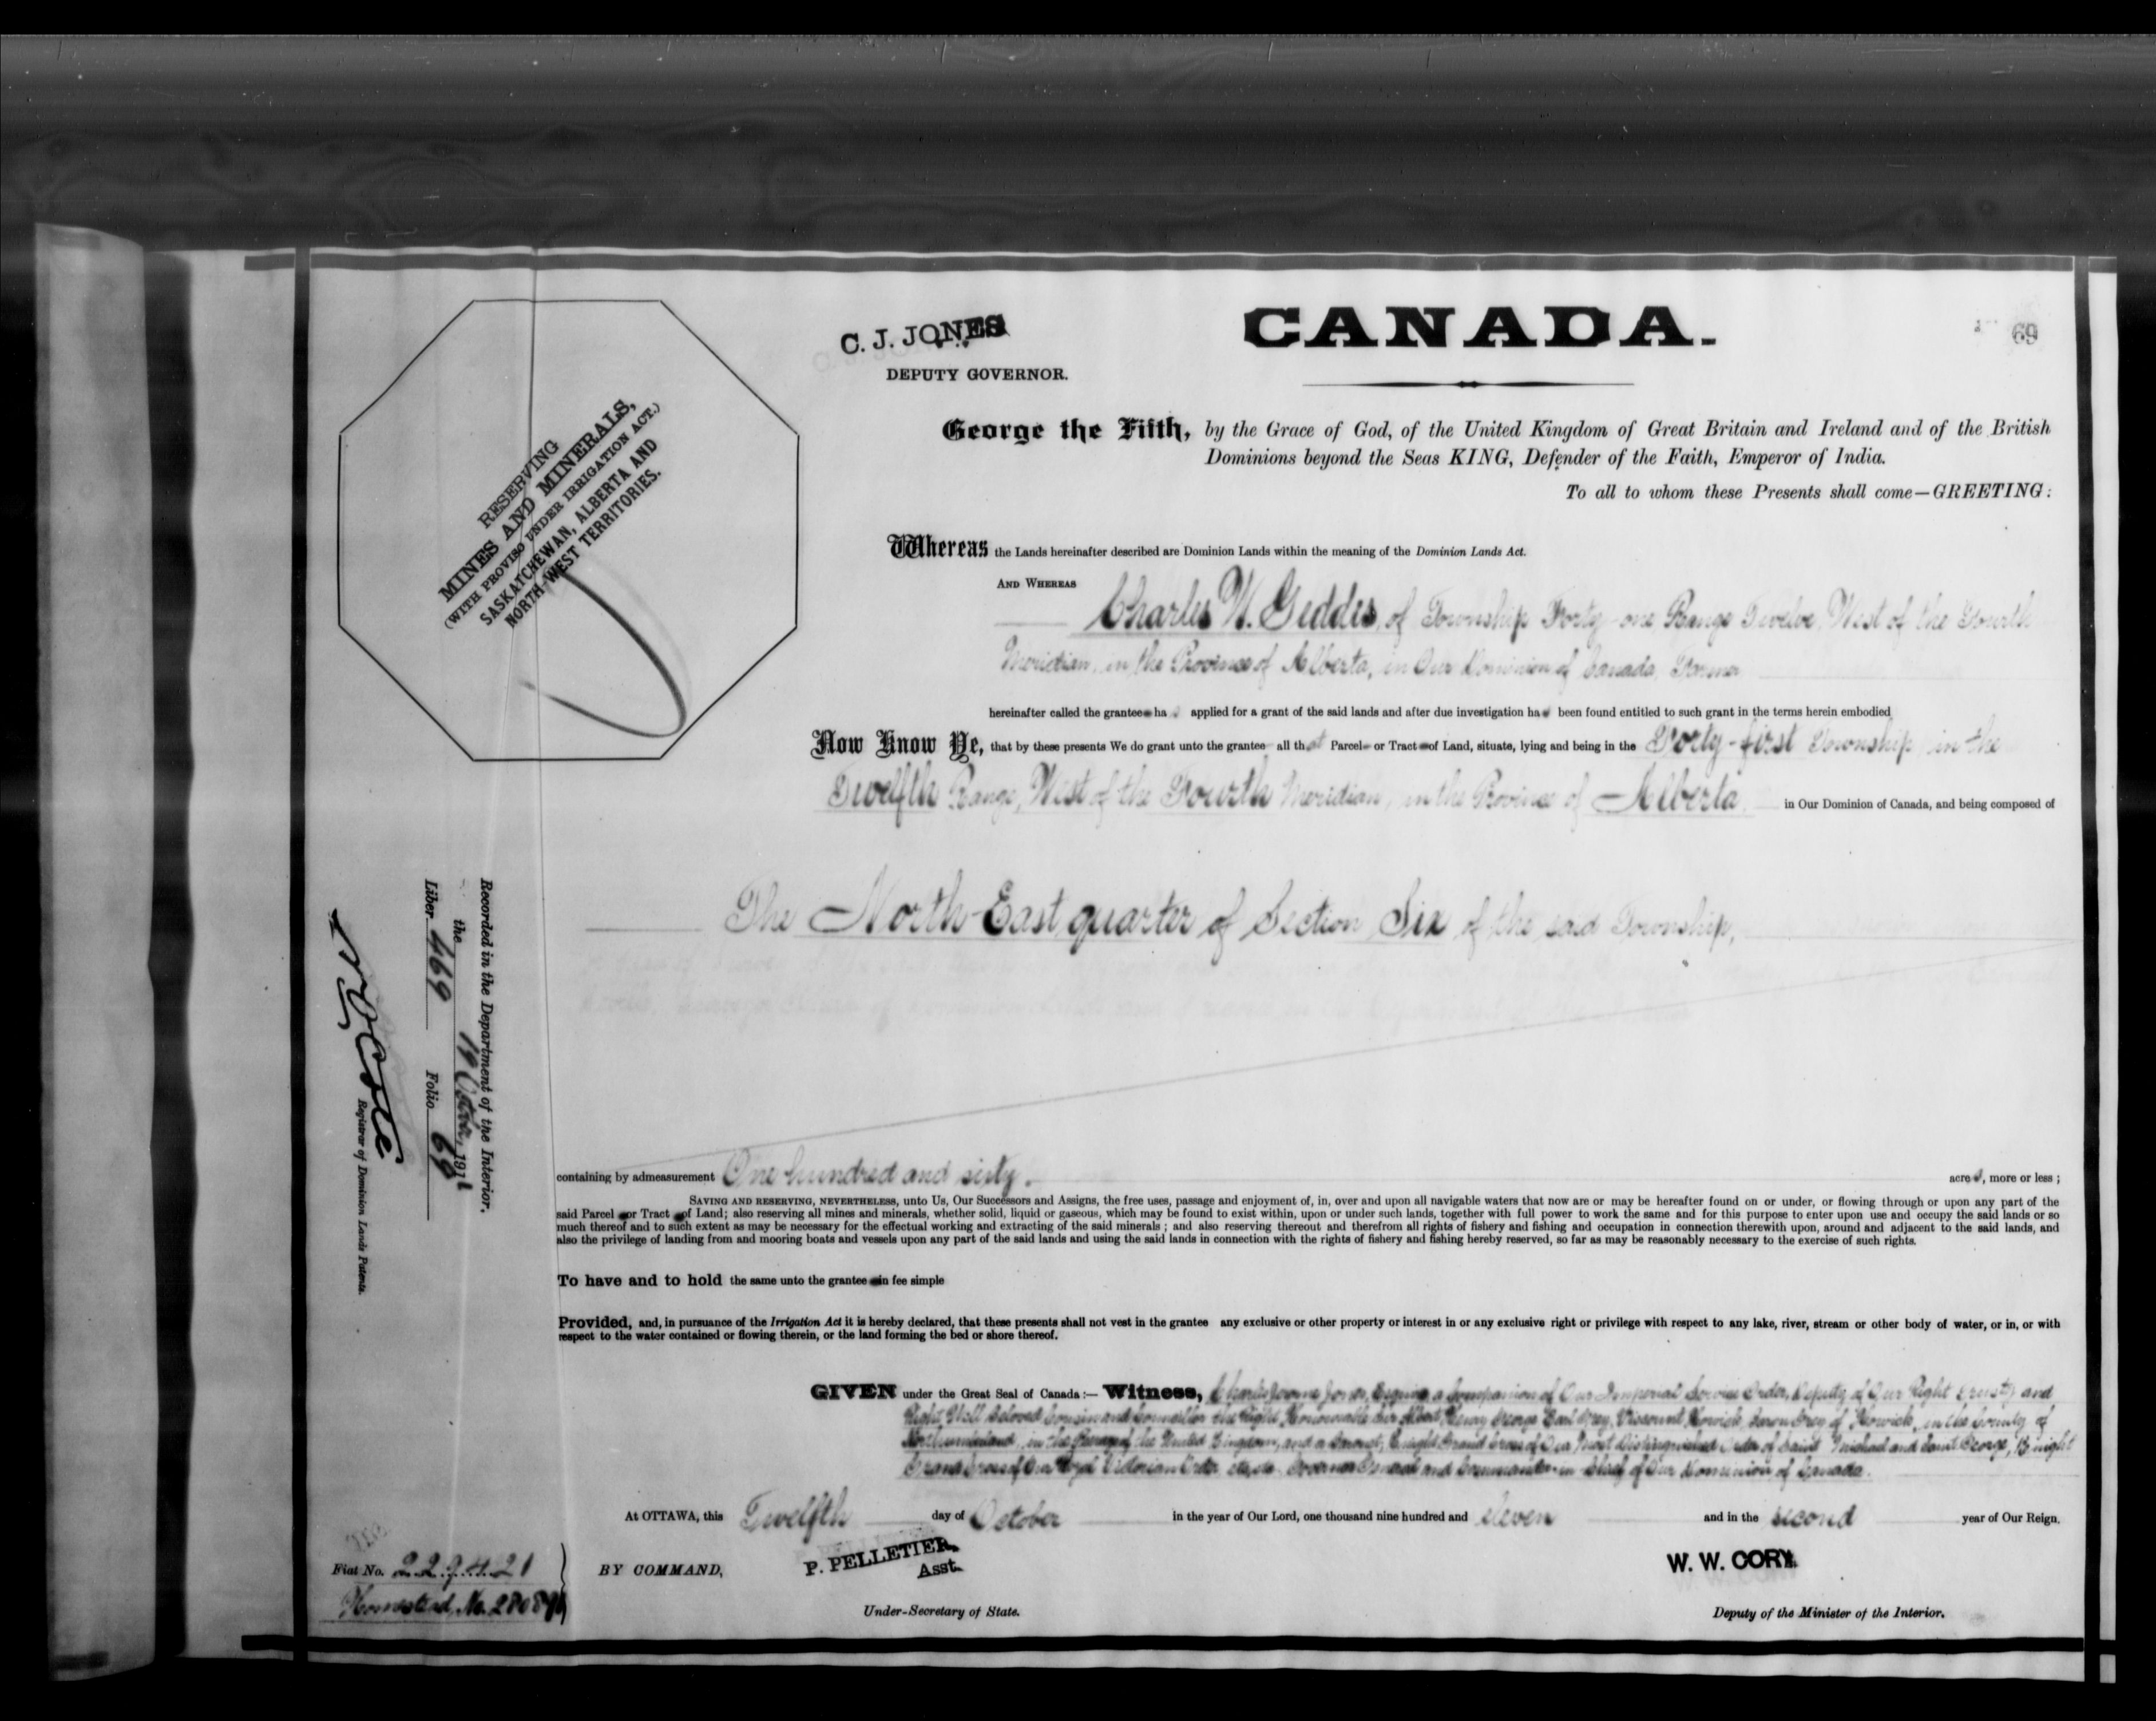 CANADA.
69
C. J. JONES
DEPUTY GOVERNOR.
RESERVING
MINES AND MINERALS,
(WITH PROVISO UNDER IRRIGATION ACT.)
SASKATCHEWAN, ALBERTA AND
NORTH-WEST TERRITORIES.
George the Fifth, by the Grace of God, of the United Kingdom of Great Britain and Ireland and of the British
Dominions beyond the Seas KING, Defender of the Faith, Emperor of India.
To all to whom these Presents shall come—GREETING:
Whereas the Lands hereinafter described are Dominion Lands within the meaning of the Dominion Lands Act.
AND WHEREAS
Charles W. Geddes, of Township Forty-one, Range Twelve, West of the Fourth
Meridian, in the Province of Alberta, in Our Dominion of Canada, Farmer
hereinafter called the grantee ha applied for a grant of the said lands and after due investigation has been found entitled to such grant in the terms herein embodied
Now Know Ye, that by these presents We do grant unto the grantee all that Parcel or Tract of Land, situate, lying and being in the Forty-first Township in the
Twelfth Range, West of the Fourth Meridian, in the Province of Alberta in Our Dominion of Canada, and being composed of
The North-East quarter of Section Six of the said Township,
containing by admeasurement One hundred and sixty. acres, more or less ;
SAVING AND RESERVING, NEVERTHELESS, unto Us, Our Successors and Assigns, the free uses, passage and enjoyment of, in, over and upon all navigable waters that now are or may be hereafter found on or under, or flowing through or upon any part of the
said Parcel or Tract of Land; also reserving all mines and minerals, whether solid, liquid or gaseous, which may be found to exist within, upon or under such lands, together with full power to work the same and for this purpose to enter upon use and occupy the said lands or so
much thereof and to such extent as may be necessary for the effectual working and extracting of the said minerals ; and also reserving thereout and therefrom all rights of fishery and fishing and occupation in connection therewith upon, around and adjacent to the said lands, and
also the privilege of landing from and mooring boats and vessels upon any part of the said lands and using the said lands in connection with the rights of fishery and fishing hereby reserved, so far as may be reasonably necessary to the exercise of such rights.
To have and to hold the same unto the grantee in fee simple
Provided, and, in pursuance of the Irrigation Act it is hereby declared, that these presents shall not vest in the grantee any exclusive or other property or interest in or any exclusive right or privilege with respect to any lake, river, stream or other body of water, or in, or with
respect to the water contained or flowing therein, or the land forming the bed or shore thereof.
GIVEN under the Great Seal of Canada :— Witness, Charles Jones, Esquire, a Companion of Our Imperial Service Order, Deputy of Our Right Trusty and
Right Well Beloved Cousin and Councillor the Right Honourable Sir Albert Henry George Earl Grey, Viscount Howick, Baron Grey of Howick, in the County of
Northumberland, in the Peerage of the United Kingdom, and a Baronet; Knight Grand Cross of Our Most Distinguished Order of Saint Michael and Saint George, Knight
Grand Cross of Our Royal Victorian Order, Governor General and Commander-in-Chief of Our Dominion of Canada.
At OTTAWA, this Twelfth day of October in the year of Our Lord, one thousand nine hundred and eleven and in the second year of Our Reign.
BY COMMAND,
P. PELLETIER,
Asst.
Under-Secretary of State.
W. W. CORY.
Deputy of the Minister of the Interior.
Recorded in the Department of the Interior.
the 19 October, 1911
Liber 469 Folio 69
Registrar of Dominion Lands Patents.
Fiat No.
Homestead, No.